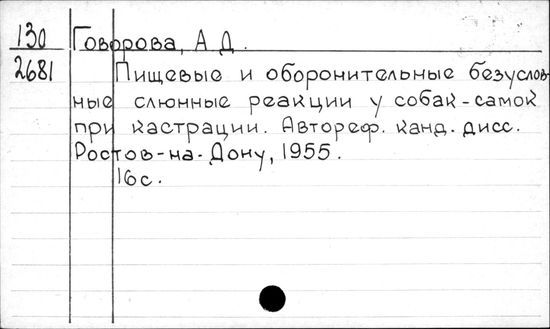 130 Говорова, А Д.
2681 Пищевые и оборонительные безуслов-
ные слюнные реакции у собак-самок
при кастрации. Автореф. канд. дисс.
Ростов-на-Дону, 1955.
16с.